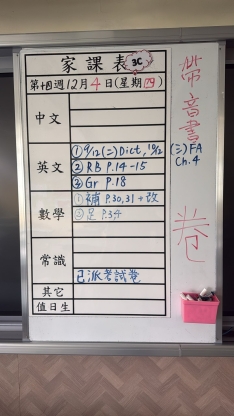 家課表 3C
第十四週12月4日(星期四)
中文
英文
①9/12(二)Dict, 10/12(三)FA Ch.4
②RB P.14-15
③Gr P.18
數學
①補P.30,31+改
常識
已派考試卷
其它
值日生
帶音書
卷